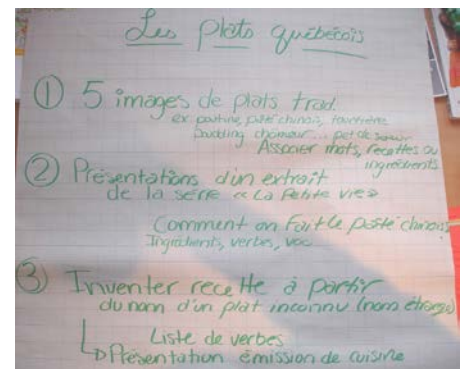 Les plats québécois
① 5 images de plats trad.
ex poutine, pâté chinois, tourtière
Pudding chômeur... pet de soeur
Associer mots, recettes ou
ingrédients
② Présentations d'un extrait
de la série « La Petite vie »
Comment on fait le pâté chinois
Ingrédients, verbes, voc
③ Inventer recette à partir
du nom d'un plat inconnu (nom étrange)
Liste de verbes
Présentation émission de cuisine